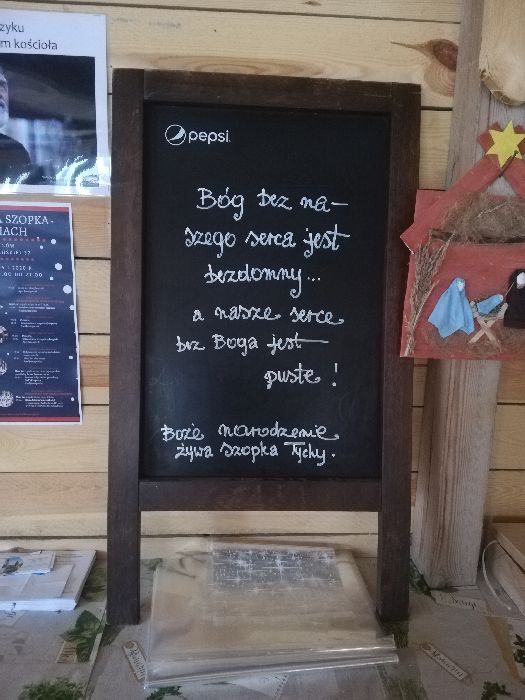 zyku
m kościoła
A SZOPKA-
IACH
pepsi
Bóg bez na-
szego serca jest
bezdomny...
a nasze serce
bez Boga jest
puste!
Boże narodzenie
żywa szopka Tychy.